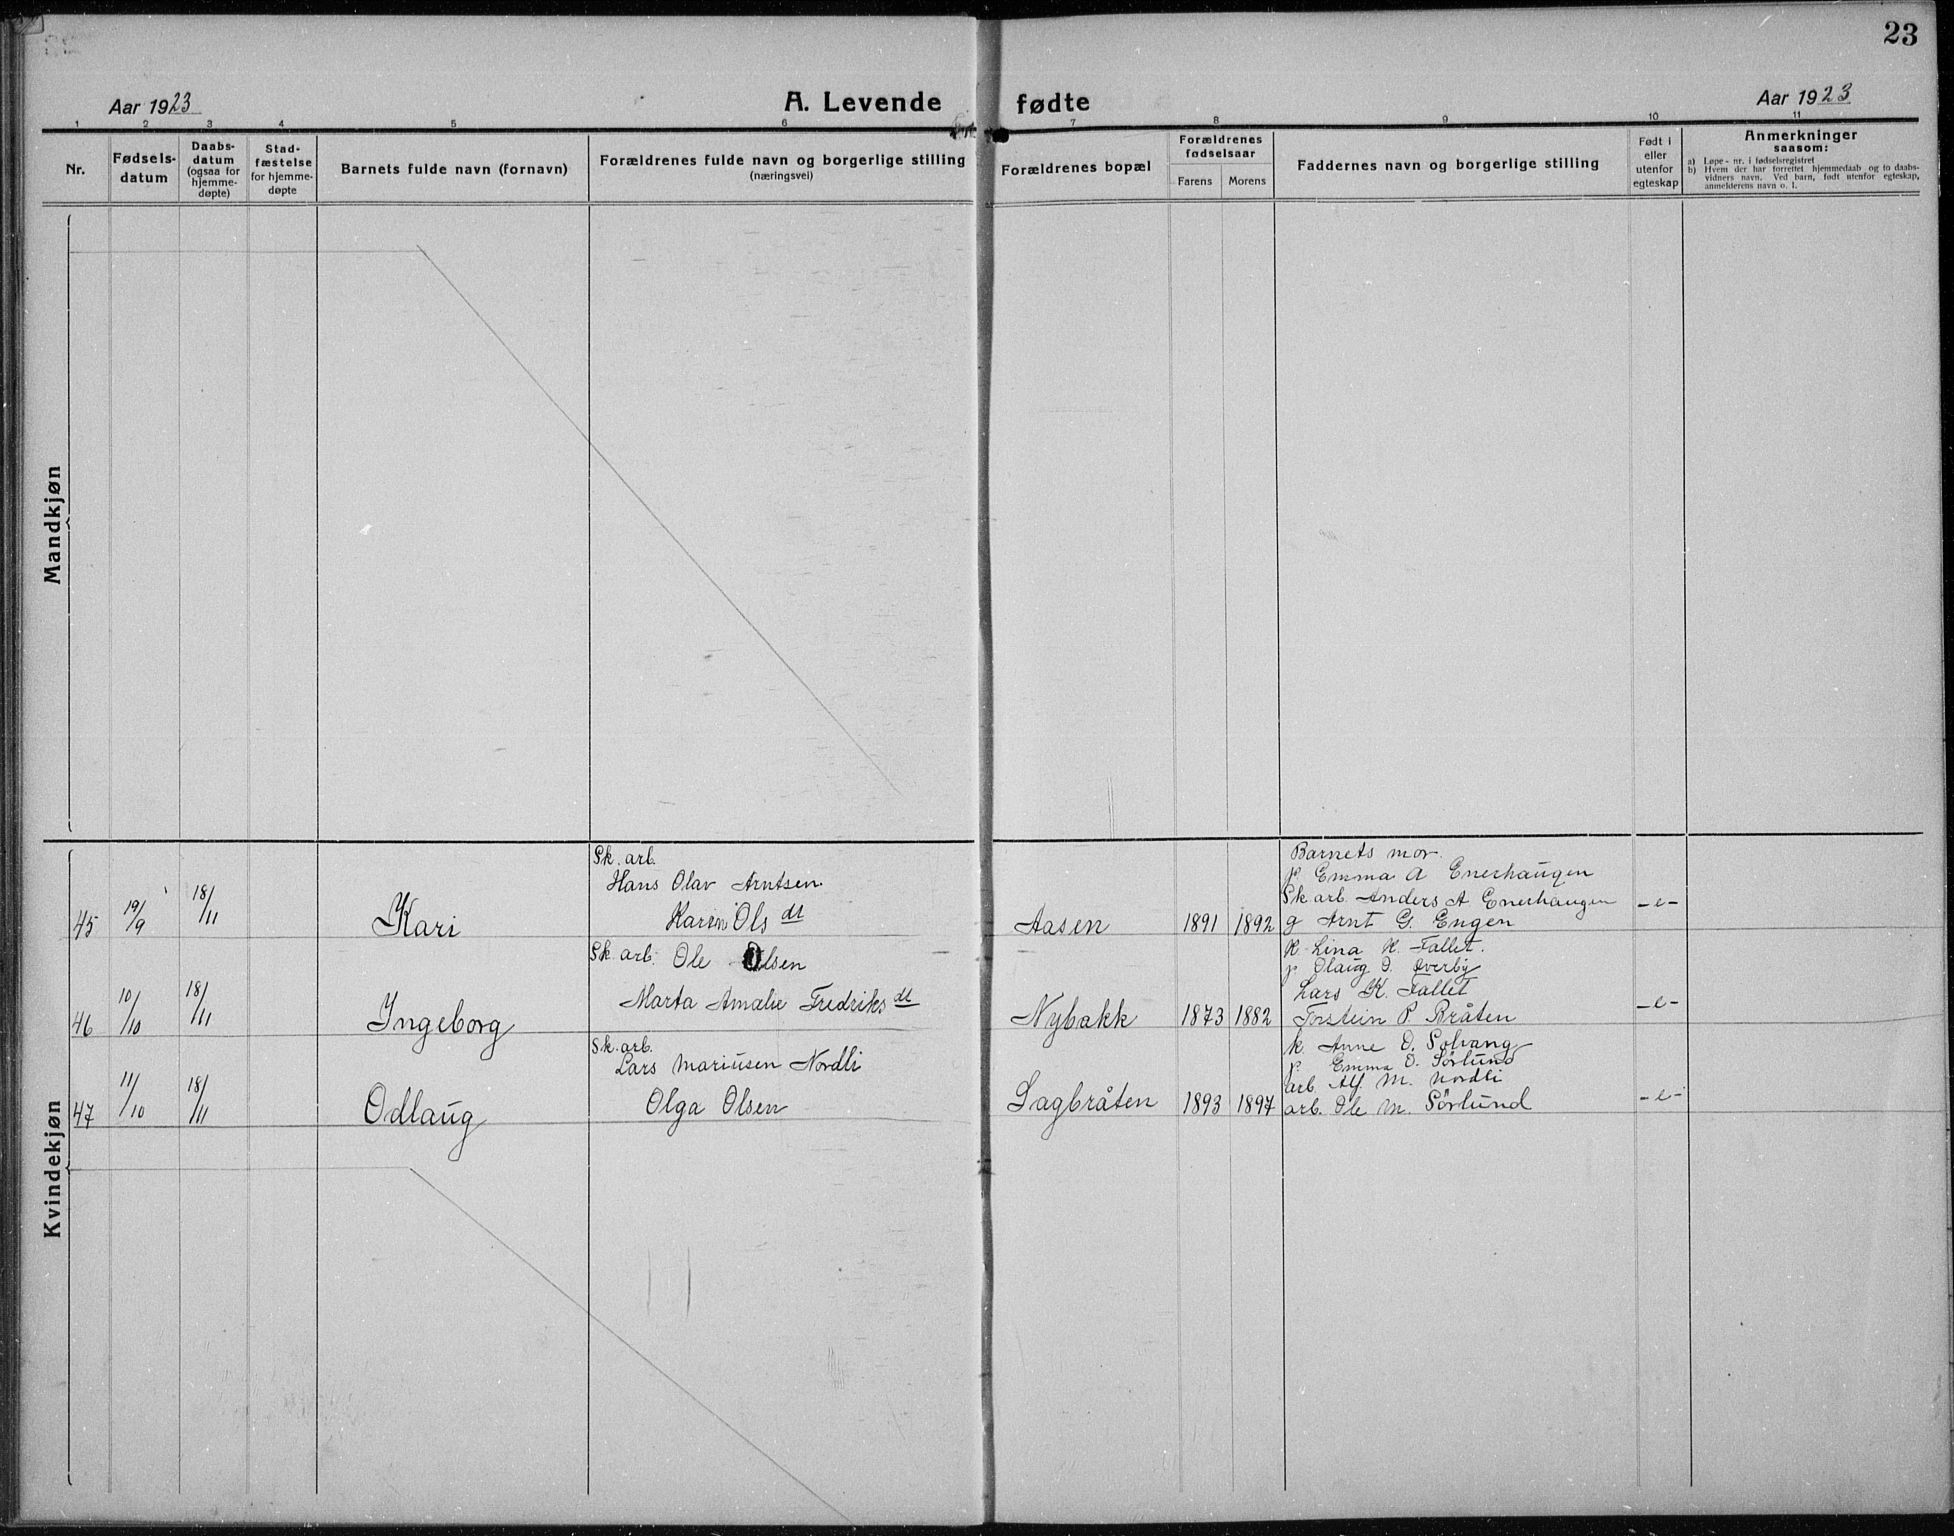 23
Aar 1923
A. Levende fødte
Aar 1923
1 2 3 4 5 6 7 8 9 10 11
Nr.
Fødsels-
datum
Daabs-
datum
(ogsaa for
hjemme-
døpte)
Stad-
fæstelse
for hjemme-
døpte
Barnets fulde navn (fornavn)
Forældrenes fulde navn og borgerlige stilling
(næringsvei)
Forældrenes bopæl
Forældrenes
fødselsaar
Farens Morens
Faddernes navn og borgerlige stilling
Født i
eller
utenfor
egteskap
Anmerkninger
saasom:
a) Løpe-nr. i fødselsregistret
b) Hvem der har forrettet hjemmedaab og to daabs-
vidners navn. Ved barn, født utenfor egteskap,
anmelderens navn o. l.
Mandkjøn
Kvindekjøn
45 19/9 18/11 Kari
Sk. arb.
Hans Olav Arntsen
Karen Olsdt
Aasen 1891 1892
Barnets mor.
p Emma A Enerhaugen
Sk arb. Anders A Enerhaugen
g Arnt G. Engen
-e-
46 10/10 18/11 Ingeborg
Sk. arb. Ole Olsen
Marta Amalie Fredriksdt
Nybakk 1873 1882
K Lina K. Fallet.
p Olaug O. Överby
Lars K. Fallet
Torstein P. Bråten
-e-
47 11/10 18/11 Odlaug
Sk. arb.
Lars Mariusen Nordli
Olga Olsen
Sagbråten 1893 1897
k. Anne O. Solvang
p Emma O. Sörlund
arb Alf. M. Nordli
arb. Ole M. Sörlund
-e-